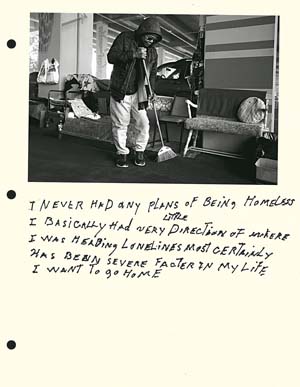 I NEVER HAD ANY PLANS OF BEING HOMELESS
LITTLE
I BASICALLY HAD VERY DIRECTION OF WHERE
I WAS HEADING LONELINES MOST CERTAINLY
HAS BEEN SEVERE FACTER IN MY LIFE
I WANT TO GO HOME